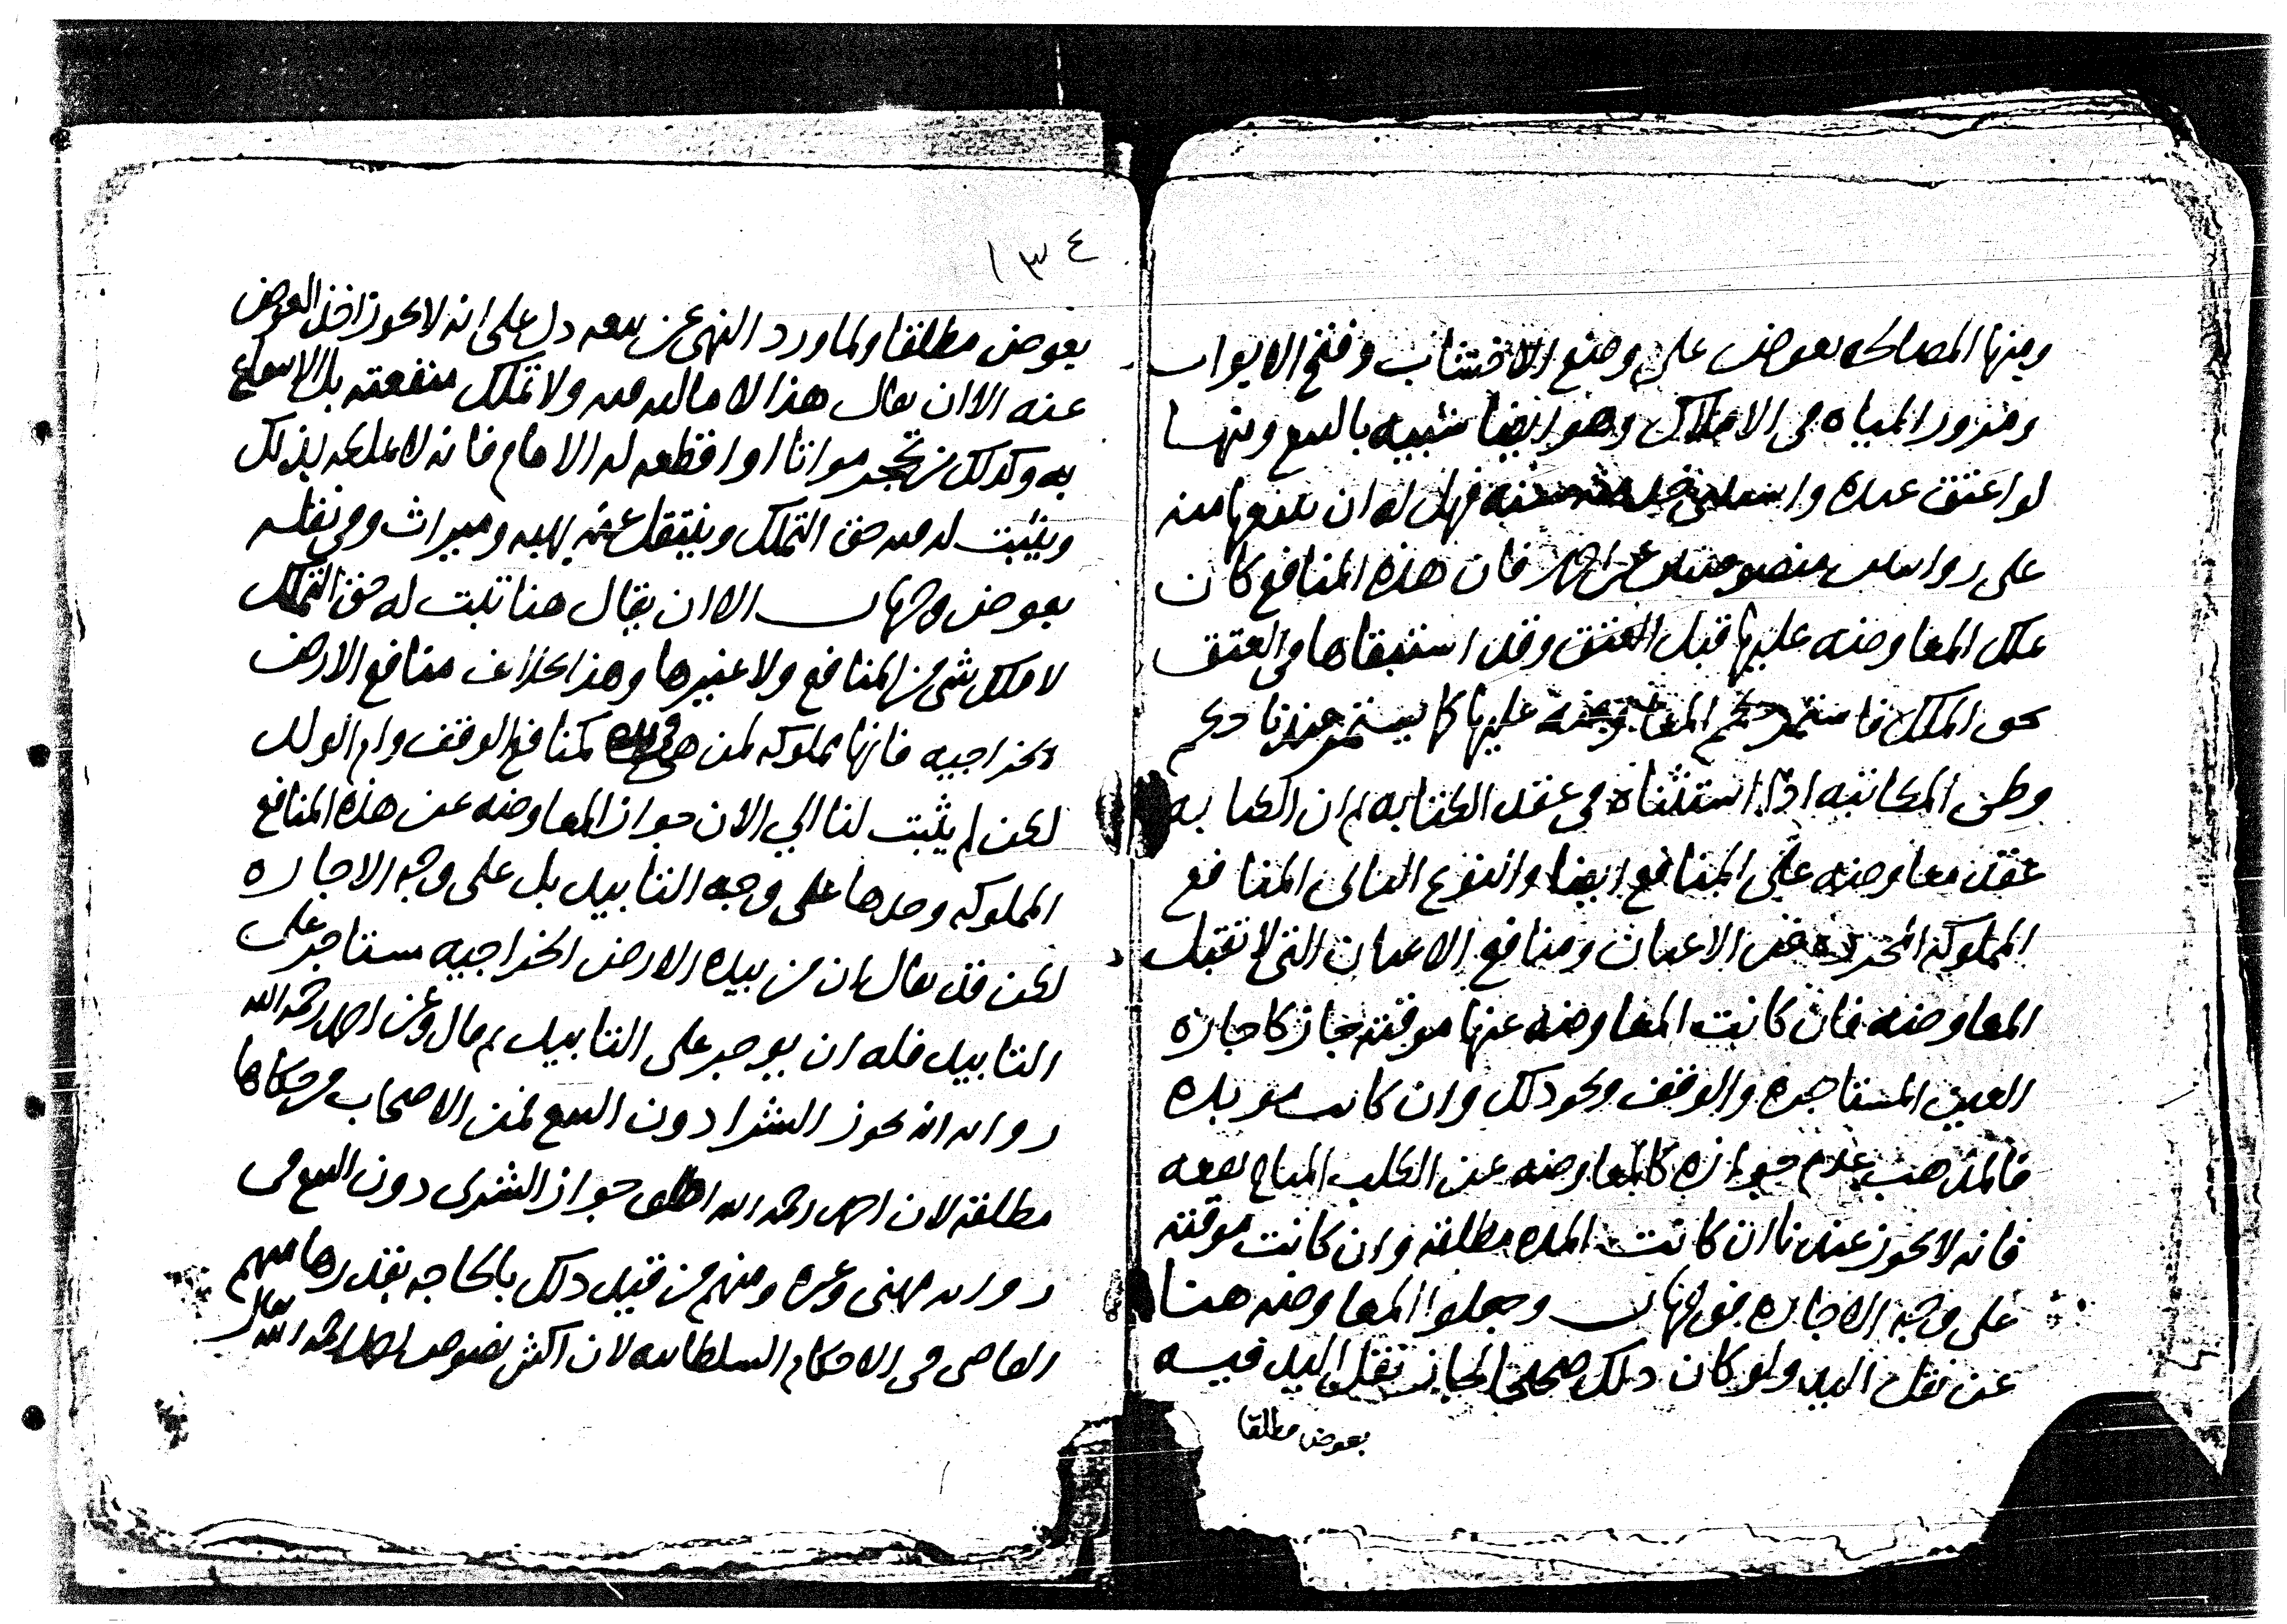 ومنها المصالحه بعوض على وضع الاخشاب وفتح الابواب
ومرور المياه في الاملاك وهو ايضا شبيه بالبيع ومنها
لو اعتق عبده واستثنى خدمته سنه فهل له ان يبيعها منه
على روايتين منصوصتين عن احمد فان هذه المنافع كان
يملك المعاوضه عليها قبل العتق وقد استبقاها في العتق
بحق الملك فاستمر حكم المعاوضه عليها كما يستمر عندنا حكم
وطئ المكاتبه اذا استثناه في عقد الكتابه ثم ان الكتابه
عقد معاوضه على المنافع ايضا والنوع الثاني المنافع
المملوكه المجرده عن الاعيان ومنافع الاعيان التي لا تقبل
المعاوضه فان كانت المعاوضه عنها موقته جاز كاجاره
العين المستاجره والوقف ونحو ذلك وان كانت مؤبده
فالمذهب عدم جوازه كالمعاوضه عن الكلب المباح نفعه
فانه لا يجوز عندنا ان كانت المده مطلقه وان كانت موقته
على وجه الاجاره فوجهان وجعلوا المعاوضه هنا
عن نقل اليد ولو كان ذلك صحيحا لجاز نقل اليد فيه
بعوض مطلقا
١٣٤
بعوض مطلقا ولما ورد النهي عن بيعه دل على انه لا يجوز اخذ العوض
عنه الا ان يقال هذا لا ماليه فيه ولا تملك منفعته بل الانتفاع
به وكذلك من تحجر مواتا او اقطعه له الامام فانه لا يملكه بذلك
ويثبت له فيه حق التملك وينتقل عنه بهبه وميراث وفي نقله
بعوض وجهان الا ان يقال هنا ثبت له حق التملك
لا ملك شي من المنافع ولا غيرها وهذا بخلاف منافع الارض
الخراجيه فانها مملوكه لمن هي في يده كمنافع الوقف وام الولد
لكن لم يثبت لنا الي الان جواز المعاوضه عن هذه المنافع
المملوكه وحدها على وجه التابيد بل على وجه الاجاره
لكن قد يقال ان من بيده الارض الخراجيه مستاجر على
التابيد فله ان يوجر على التابيد ثم قال وعن احمد رحمه الله
روايه انه يجوز الشرا دون البيع فمن الاصحاب من حكاها
مطلقه لان احمد رحمه الله اطلق جواز الشرى دون البيع في
روايه مهنى وغيره ومنهم من قيد ذلك بالحاجه بقدرها منهم
القاضي في الاحكام السلطانيه لان اكثر نصوص احمد رحمه الله تعالى